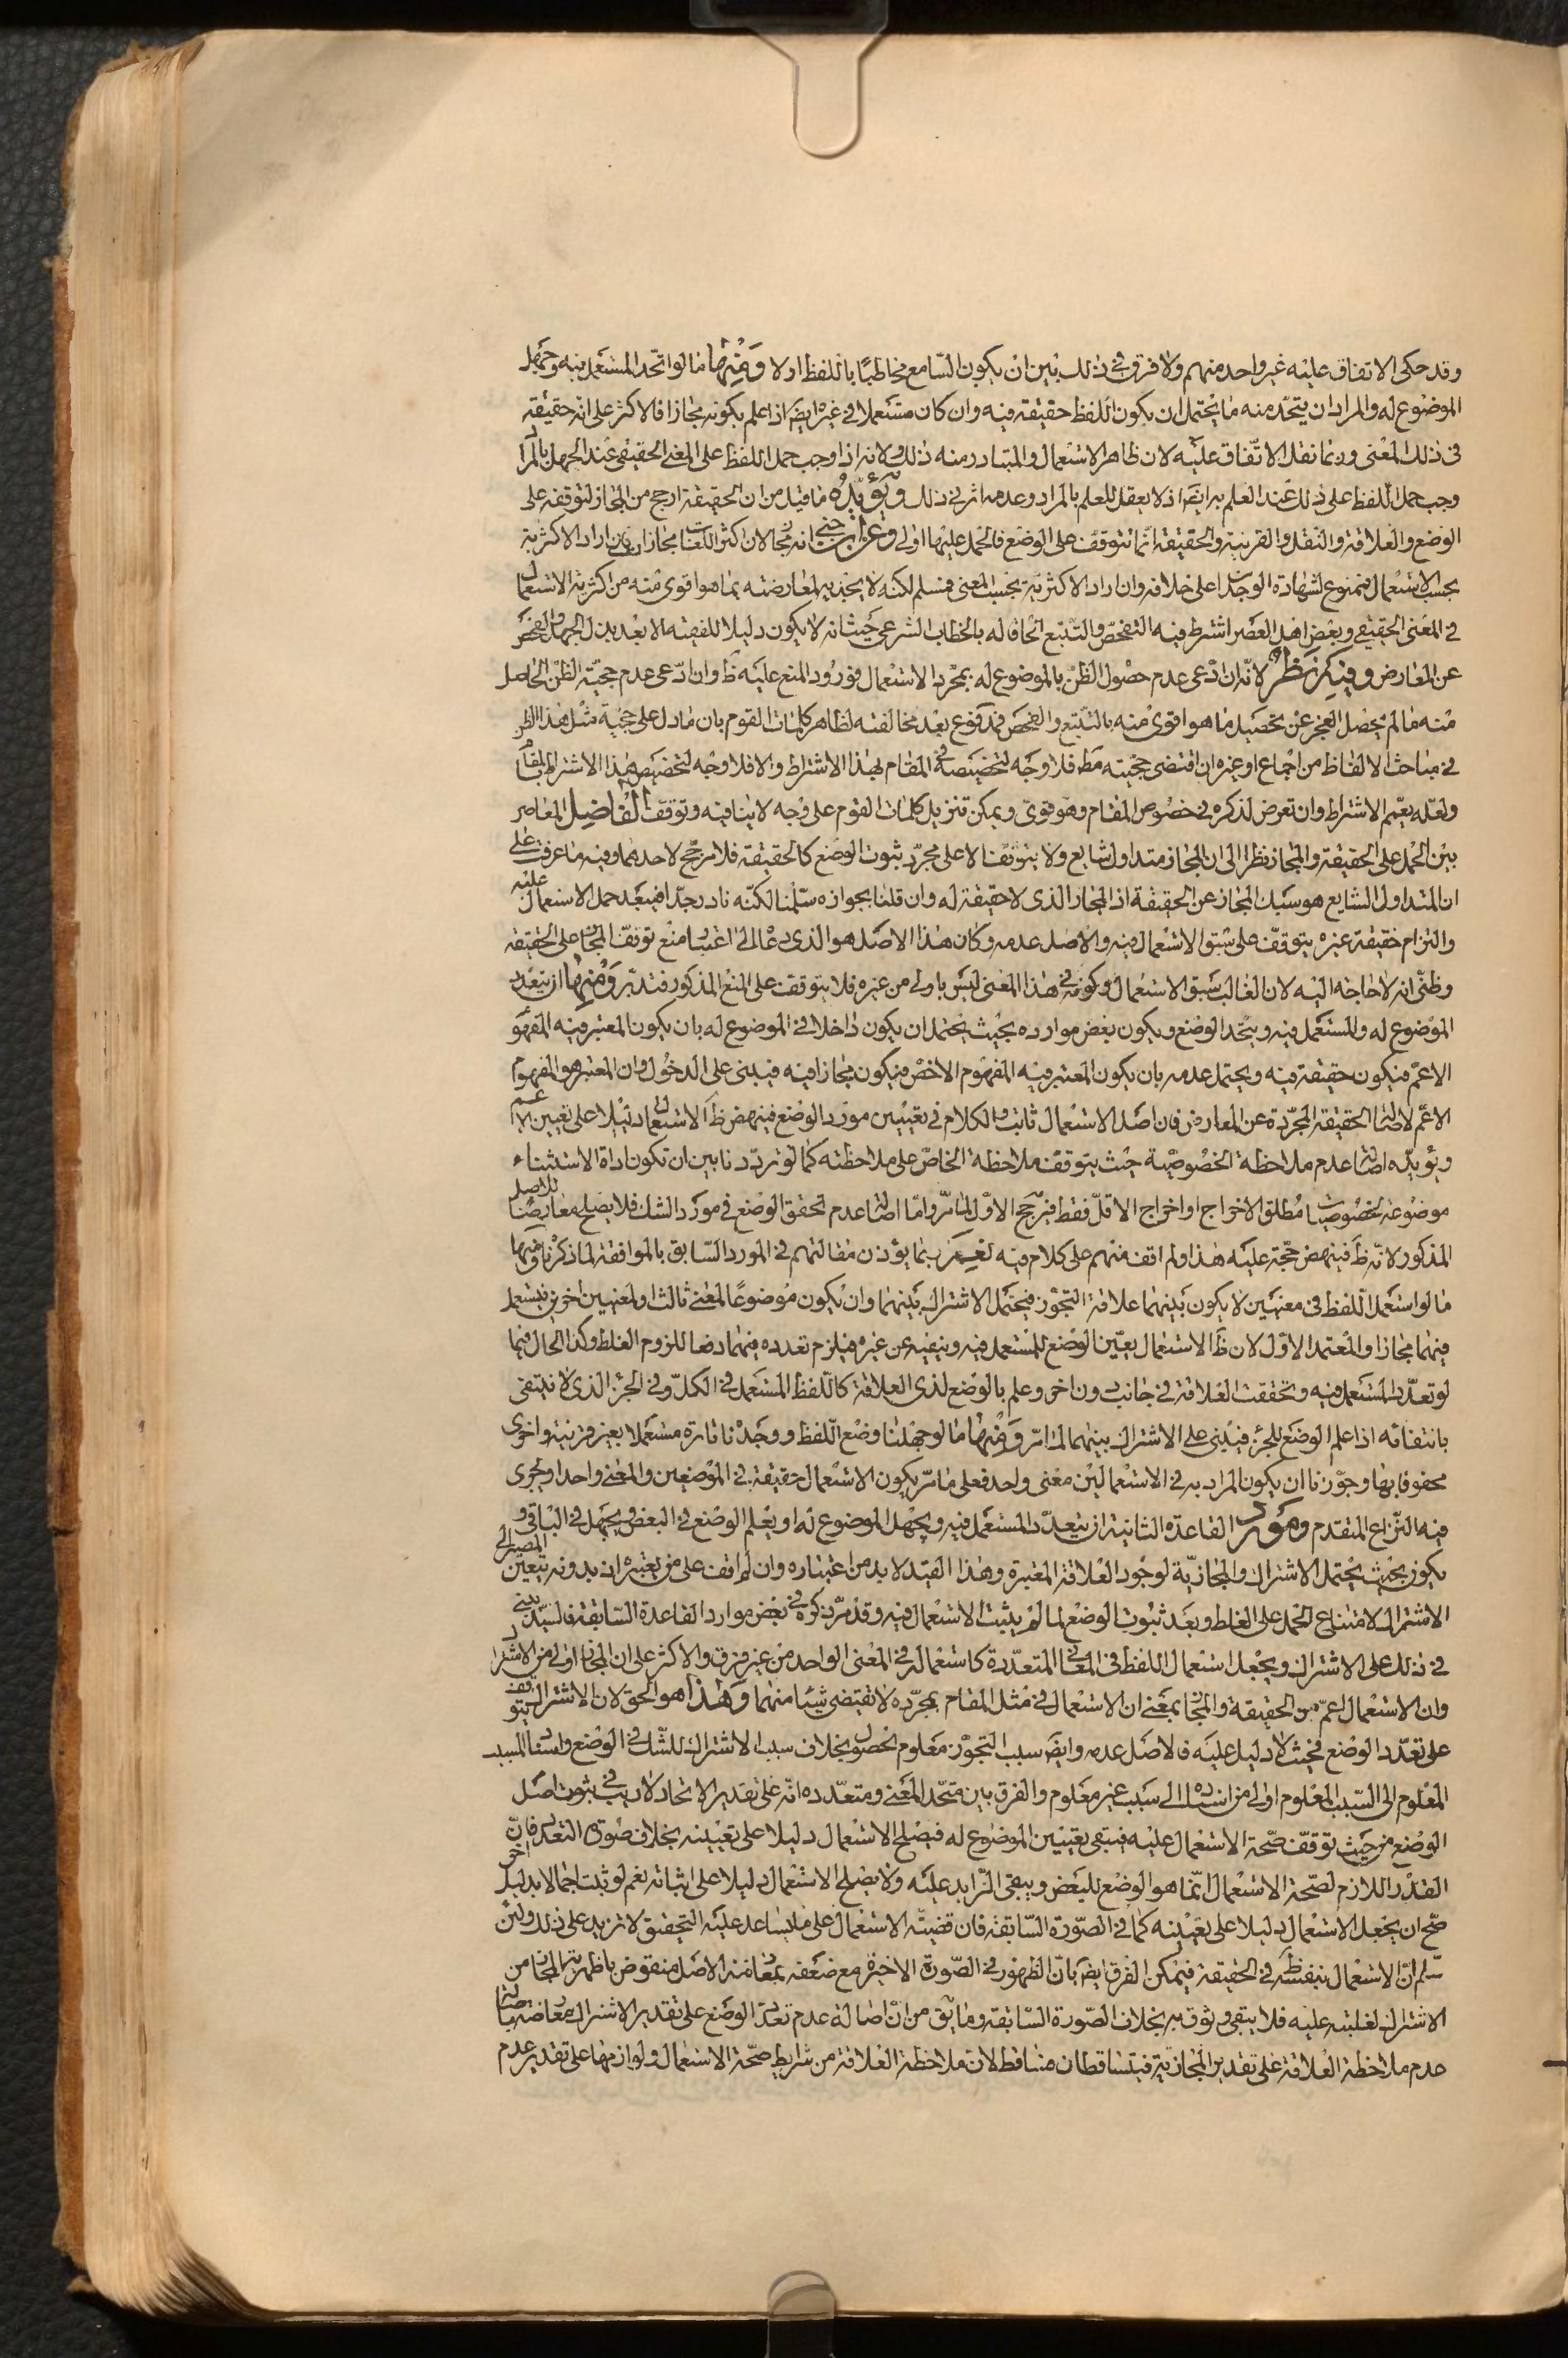 وقد حكى الاتفاق عليه غير واحد منهم ولا فرق فى ذلك بين ان يكون السّامع مخاطبًا باللفظ اولا وَمِنْها ما لو اتّحد المستعمل فيه وجهل
الموضوع له والمراد ان يتحد منه ما يحتمل ان يكون اللفظ حقيقة فيه وان كان مستعملا فى غيره ايضا اذا علم بكونه مجازا فالاكثر على انه حقيقة
فى ذلك المعنى وربما نقل الاتّفاق عليه لان ظاهر الاستعمال والمتبادر منه ذلك ولانه اذا وجب حمل اللفظ على المعنى الحقيقى عند الجهل بالمراد
وجب حمل اللفظ على ذلك عند العلم به ايضا اذ لا يعقل للعلم بالمراد وعدمه اثر فى ذلك ويؤيّده ما قيل من ان الحقيقة ارجح من المجاز لتوقفه على
الوضع والعلاقة والنقل والقرينة والحقيقة انما تتوقف على الوضع فالحمل عليها اولى وعن ابن جنى انه مجاز لان اكثر اللغات مجازات فان اراد الاكثرية
بحسب الاستعمال فممنوع لشهادة الوجدان على خلافه وان اراد الاكثرية بحسب المعنى فمسلم لكنه لا يجديه لمعارضته بما هو اقوى منه من اكثرية الاستعمال
فى المعنى الحقيقى وبعض اهل العصر اشترط فيه التفحّص والتتبع الحاقا له بالخطاب الشرعى حيث انه لا يكون دليلا للفقيه الا بعد بذل الجهد والفحص
عن المعارض وفيه نظر لانّه ان ادّعى عدم حصول الظن بالموضوع له بمجرد الاستعمال فورود المنع عليه ظ وان ادّعى عدم حجيّة الظن الحاصل
منه ما لم يحصل العجز عن تحصيل ما هو اقوى منه بالتتبع والفحص فمدفوع بعد مخالفته لظاهر كلمات القوم بان ما دل على حجية مثل هذا الظن
فى مباحث الالفاظ من اجماع او غيره ان اقتضى حجيته مط فلا وجه لتخصيصه فى المقام بهذا الاشتراط والا فلا وجه لتخصيص هذا الاشتراط بالمقام
ولعله يعمم الاشتراط وان تعرض لذكره فى خصوص المقام وهو قوىّ ويمكن تنزيل كلمات القوم على وجه لا ينافيه وتوقف الفاضل المعاصر
بين الحمل على الحقيقة والمجاز نظرا الى ان المجاز متداول شايع ولا يتوقف الا على مجرّد ثبوت الوضع كالحقيقة فلا مرجّح لاحدهما وفيه ما عرفت على
ان المتداول الشايع هو سبك المجاز عن الحقيقة اذ المجاز الذى لا حقيقة له وان قلنا بجوازه سلّمنا لكنّه نادر جدّا فيبعد حمل الاستعمال عليه
والتزام حقيقة غيره يتوقف على سبق الاستعمال فيه والاصل عدمه وكان هذا الاصل هو الذى دعا العالم الى اعتبار منع توقف المجاز على الحقيقة
وظنّى انه لا حاجة اليه لان الغالب سبق الاستعمال وكونه فى هذا المعنى ليس باولى من غيره فلا يتوقف على المنع المذكور فتدبّر وَمِنها ان يتعدد
الموضوع له والمستعمل فيه ويتحد الوضع ويكون بعض موارده بحيث يحتمل ان يكون داخلا فى الموضوع له بان يكون المعتبر فيه المفهوم
الاعم فيكون حقيقة فيه ويحتمل عدمه بان يكون المعتبر فيه المفهوم الاخص فيكون مجازا فيه فيبنى على الدخول وان المعتبر هو المفهوم
الاعم لاصالة الحقيقة المجرّدة عن المعارض فان اصل الاستعمال ثابت والكلام فى تعيين مورد الوضع فينهض ظ الاستعمال دليلا على تعيين الاعم
ويؤيّده اصالة عدم ملاحظة الخصوصيّة حيث يتوقف ملاحظة الخاصّ على ملاحظته كما لو تردّدنا بين ان تكون اداة الاستثناء
موضوعة لخصوصيات مطلق الاخراج او اخراج الاقلّ فقط فيرجح الاوّل لما مرّ وامّا اصالة عدم تحقق الوضع فى مورد الشك فلا يصلح معارضا للاصل
المذكور لانّه ظ فينهض حجّة عليه هذا ولم اقف منهم على كلام فيه نعم ربما يؤذن مقالتهم فى المورد السّابق بالموافقة لما ذكرنا ومنها
ما لو استعمل اللفظ فى معنيين لا يكون بينهما علاقة التجوّز فيحتمل الاشتراك بينهما وان يكون موضوعًا لمعنى ثالث او لمعنيين اخرين فيستعمل
فيهما مجازا والمعتمد الاوّل لان ظ الاستعمال يعيّن الوضع للمستعمل فيه وينفيه عن غيره فيلزم تعدده فيهما دفعا للزوم الغلط وكذا الحال فيما
لو تعدّد المستعمل فيه وتحققت العلاقة فى جانب دون اخر وعلم بالوضع لذى العلاقة كاللفظ المستعمل فى الكلّ وفى الجزء الذى لا ينتفى
بانتفائه اذا علم الوضع للجزء فيبنى على الاشتراك بينهما لما مرّ وَمِنها ما لو جهلنا وضع اللفظ ووجدنا تارة مستعملا بغير قرينة واخرى
محفوفا بها وجوّزنا ان يكون المراد به فى الاستعمالين معنى واحد فعلى ما مرّ يكون الاستعمال حقيقة فى الموضعين والمعنى واحدا ويجرى
فيه النّزاع المتقدم ومورد القاعدة الثانية ان يتعدّد المستعمل فيه ويجهل الموضوع له او يعلم الوضع فى البعض ويجهل فى الباقى و
يكون بحيث يحتمل الاشتراك والمجازيّة لوجود العلاقة المعتبرة وهذا القيد لا بد من اعتباره وان لم اقف على من يعتبره اذ بدونه يتعين المصير الى
الاشتراك لامتناع الحمل على الغلط وبعد ثبوت الوضع لما لم يثبت الاستعمال فيه وقد مرّ ذكره فى بعض موارد القاعدة السّابقة فالسيّد يبنى
فى ذلك على الاشتراك ويجعل استعمال اللفظ فى المعانى المتعدّدة كاستعماله فى المعنى الواحد من غير فرق والاكثر على ان المجاز اولى من الاشتراك
وان الاستعمال اعمّ من الحقيقة والمجاز بمعنى ان الاستعمال فى مثل المقام بمجرّده لا يقتضى شيئا منهما وَهذا هو الحق لان الاشتراك يتوقف
على تعدّد الوضع فحيث لا دليل عليه فالاصل عدمه وايضا سبب التجوّز معلوم الحصول بخلاف سبب الاشتراك للشّك فى الوضع واستناد المسبب
المعلوم الى السّبب المعلوم اولى من استناده الى سبب غير معلوم والفرق بين متحد المعنى ومتعدّده انّه على تقدير الاتحاد لا ريب فى ثبوت اصل
الوضع من حيث توقف صحّة الاستعمال عليه فيبقى تعيين الموضوع له فيصلح الاستعمال دليلا على تعيينه بخلاف صورة التعدد فانّ
القدر اللازم لصحّة الاستعمال انّما هو الوضع للبعض ويبقى الزّايد عليه ولا يصلح الاستعمال دليلا على اثباته نعم لو ثبت اجمالا بدليل اخر
صحّ ان يجعل الاستعمال دليلا على تعيينه كما فى الصّورة السّابقة فان قضيّة الاستعمال على ما يساعد عليه التحقيق لا تزيد على ذلك ولئن
سلم انّ الاستعمال بنفسه ظ فى الحقيقة فيمكن الفرق ايضا بانّ الظهور فى الصّورة الاخيرة مع ضعفه بمعارضة الاصل منقوض باظهرية المجاز من
الاشتراك لغلبته عليه فلا يبقى وثوق به بخلاف الصّورة السّابقة وما يق من انّ اصالة عدم تعدّد الوضع على تقدير الاشتراك معارضة باصالة
عدم ملاحظة العلاقة على تقدير المجازيّة فيتساقطان متساقط لان ملاحظة العلاقة من شرايط صحّة الاستعمال ولوازمها على تقدير عدم